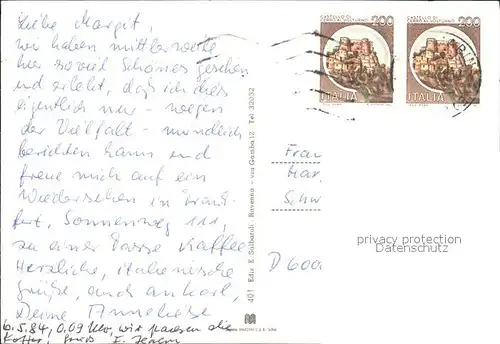 Liebe Margit,
wir haben mittlerweile
hier soviel Schönes gesehen
und erlebt, daß ich dies
eigentlich nur - wegen
der Vielfalt - mündlich
berichten kann und
freue mich auf ein
Wiedersehen in Frank-
furt, Sonnenweg 111,
zu einer Tasse Kaffee
Herzliche, italienische
Grüße, auch an Karl,
Deine Anneliese
6.5.84, 0.09 Uhr, wir packen die
Koffer, Gruß
401 Ediz. E. Salbaroli - Ravenna - via Gamba 12 - Tel. 32032
CASTELLO DI
200
ITALIA
CASTELLO DI
200
ITALIA
Frau
Mar
Schw
D 6000
privacy protection
Datenschutz